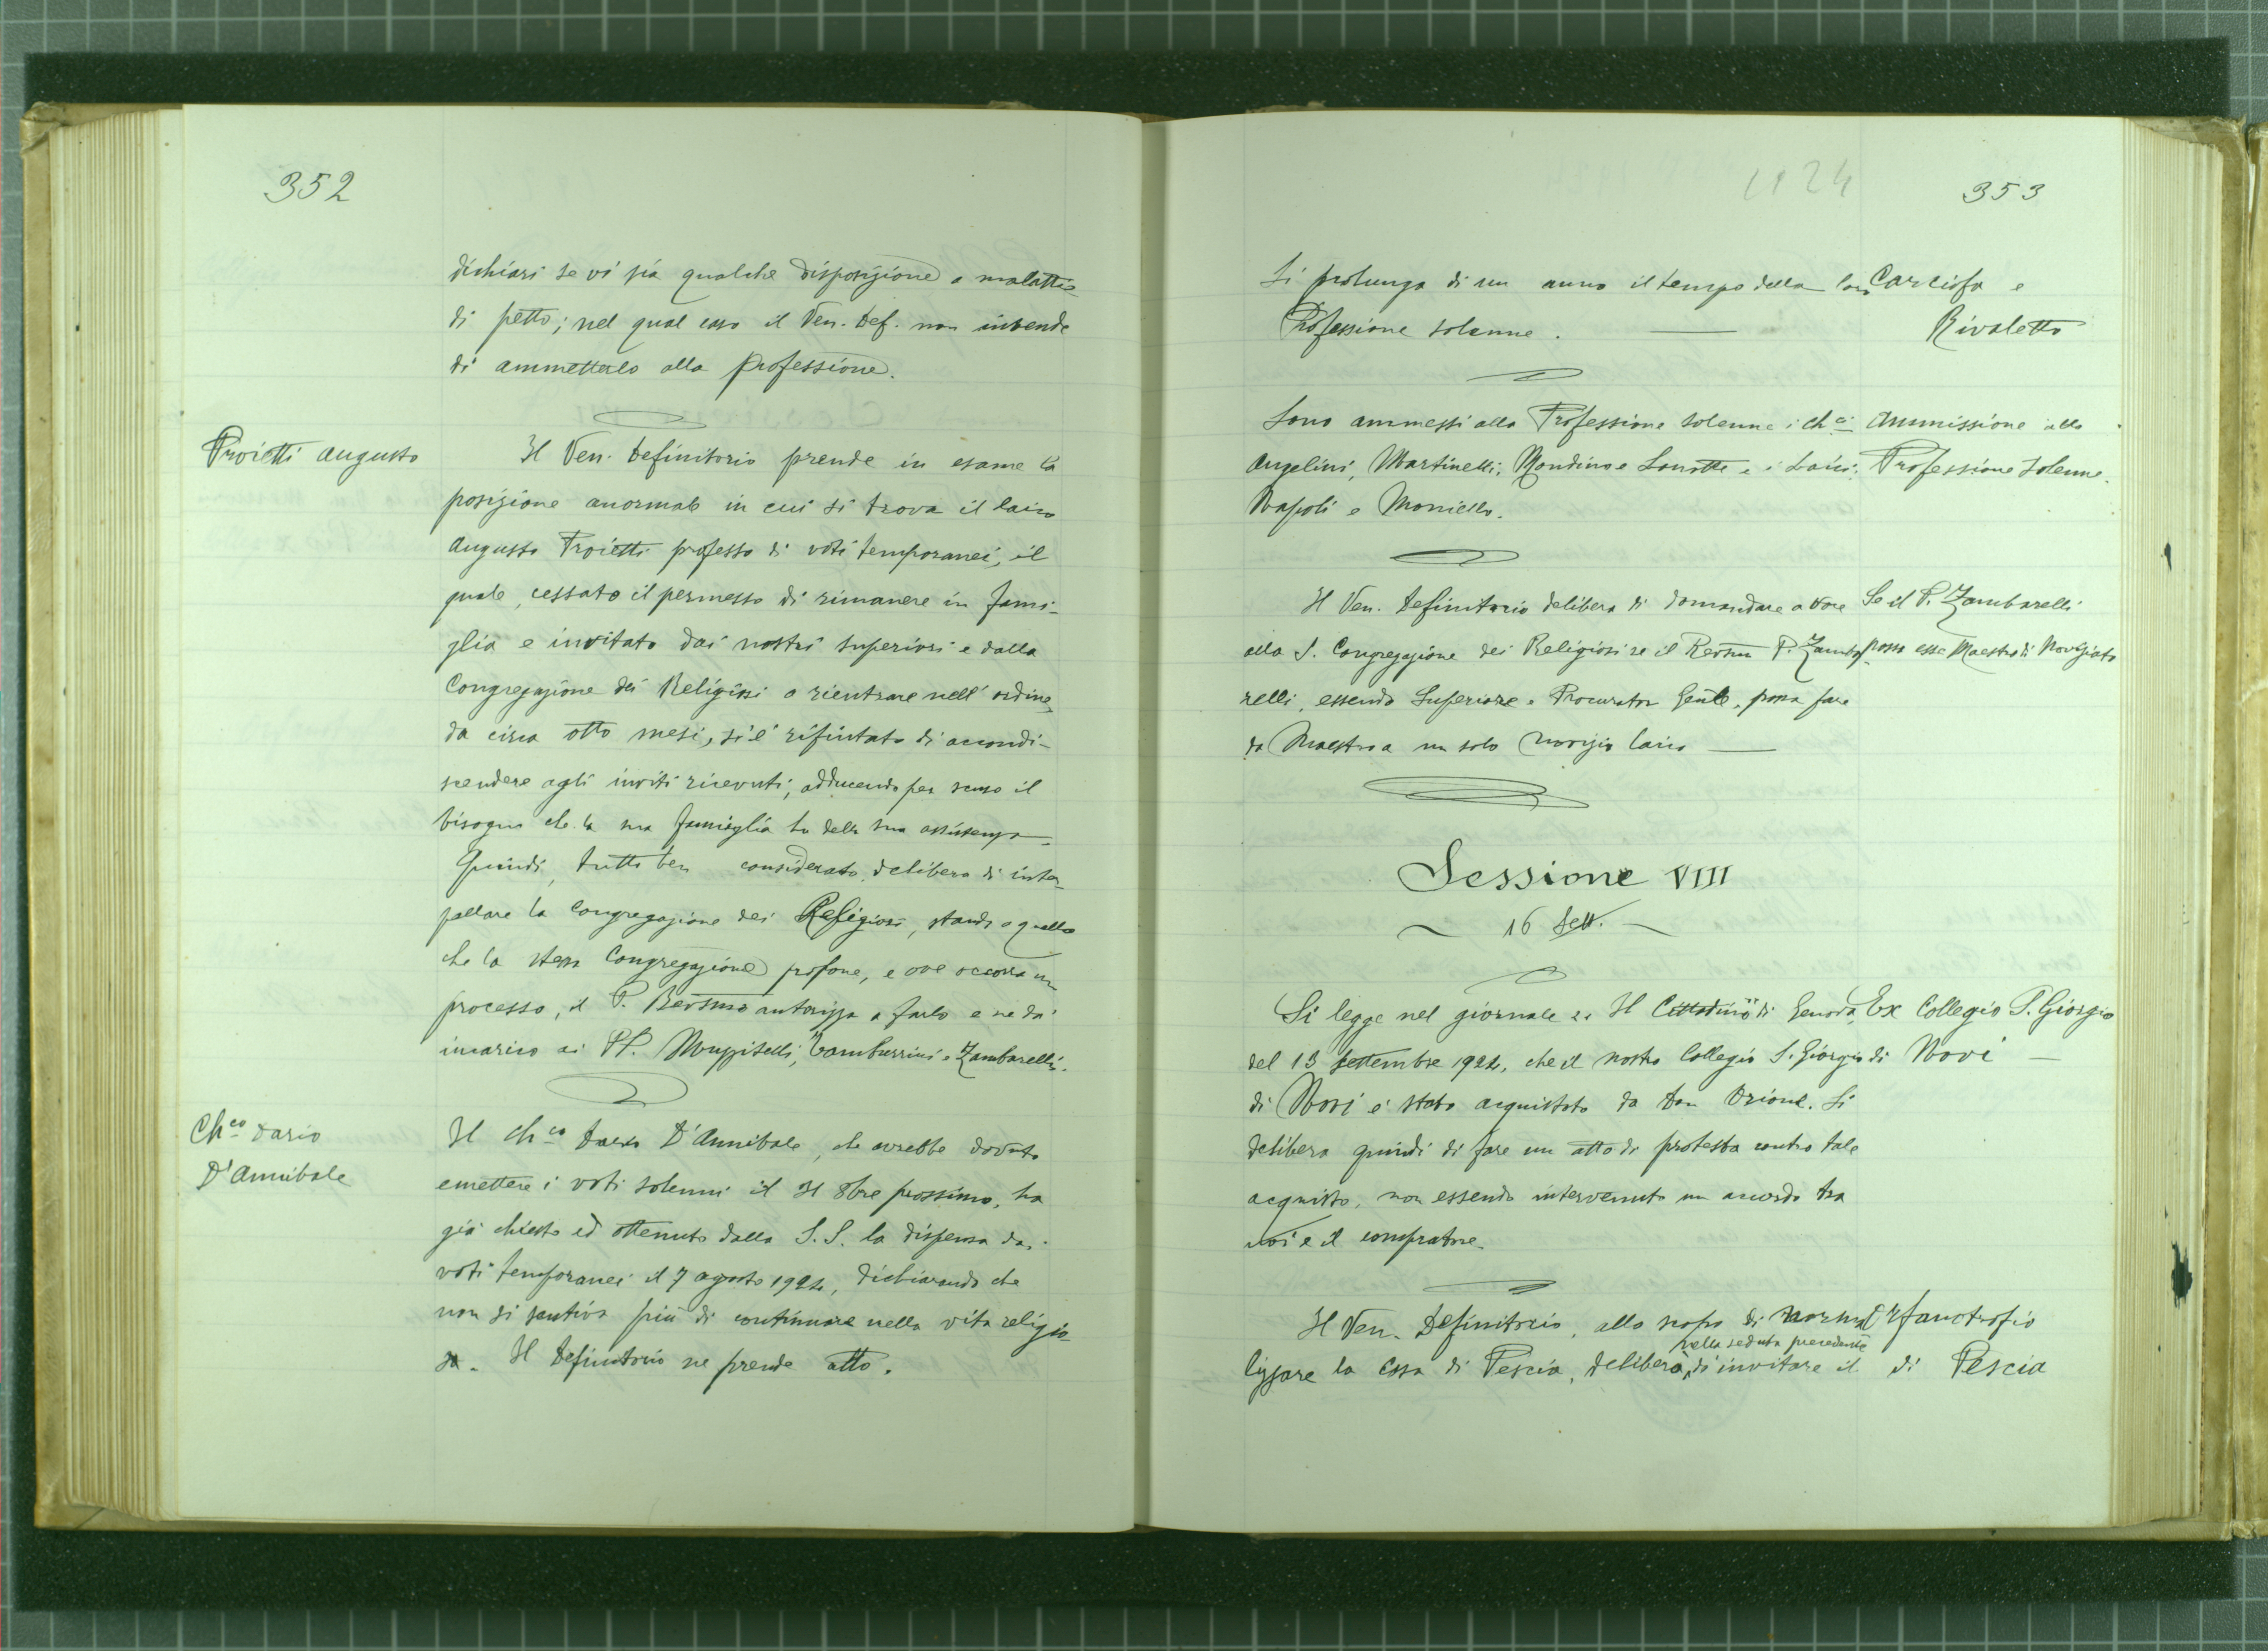 352
dichiari se vi sia qualche disposizione a malattie
di petto; nel qual caso il Ven. Def. non intende
di ammetterlo alla professione.
Proietti Augusto
Il Ven. Definitorio prende in esame la
posizione anormale in cui si trova il laico
Augusto Proietti professo di voti temporanei, il
quale, cessato il permesso di rimanere in fami-
glia e invitato dai nostri superiori e dalla
Congregazione dei Religiosi a rientrare nell'ordine,
da circa otto mesi, si è rifiutato di accondi-
scendere agli inviti ricevuti, adducendo per scusa il
bisogno che la sua famiglia ha della sua assistenza.
Quindi, tutto ben considerato, delibera di inter-
pellare la Congregazione dei Religiosi, stando a quello
che la stessa Congregazione propone, e ove occorra un
processo, il P. Revsmo autorizza a farlo e ne dà
incarico ai PP. Muzzitelli, Tamburrini e Zambarelli.
Ch.co Dario
D'Annibale
Il Ch.co Dario D'Annibale, che avrebbe dovuto
emettere i voti solenni il 31 8bre prossimo, ha
già chiesto ed ottenuto dalla S.S. la dispensa dai
voti temporanei il 7 agosto 1924, dichiarando che
non si sentiva più di continuare nella vita religio-
sa. Il Definitorio ne prende atto.
1924
353
Si prolunga di un anno il tempo della loro
Professione solenne.
Carciofa e
Rivaletto
Sono ammessi alla Professione solenne i ch.ci
Angelini, Martinelli, Mondino e Lanotte e i Laici:
Napoli e Moniello.
Ammissione alla
Professione Solenne.
Il Ven. Definitorio delibera di domandare a voce
alla S. Congregazione dei Religiosi se il Revsmo P. Zamba-
relli, essendo Superiore e Procurator Gen.le, possa fare
da Maestro a un solo novizio laico
Se il P. Zambarelli
possa esse Maestro di Noviziato
Sessione VIII
16 Sett.
Si legge nel giornale "Il Cittadino" di Genova,
del 13 settembre 1924, che il nostro Collegio S. Giorgio
di Novi è stato acquistato da Don Orione. Si
delibera quindi di fare un atto di protesta contro tale
acquisto, non essendo intervenuto un accordo tra
noi e il compratore.
Ex Collegio S. Giorgio
di Novi
Il Ven. Definitorio, allo scopo di norma-
nella seduta precedente
lizzare la Casa di Pescia, deliberò di invitare il
Orfanotrofio
di Pescia